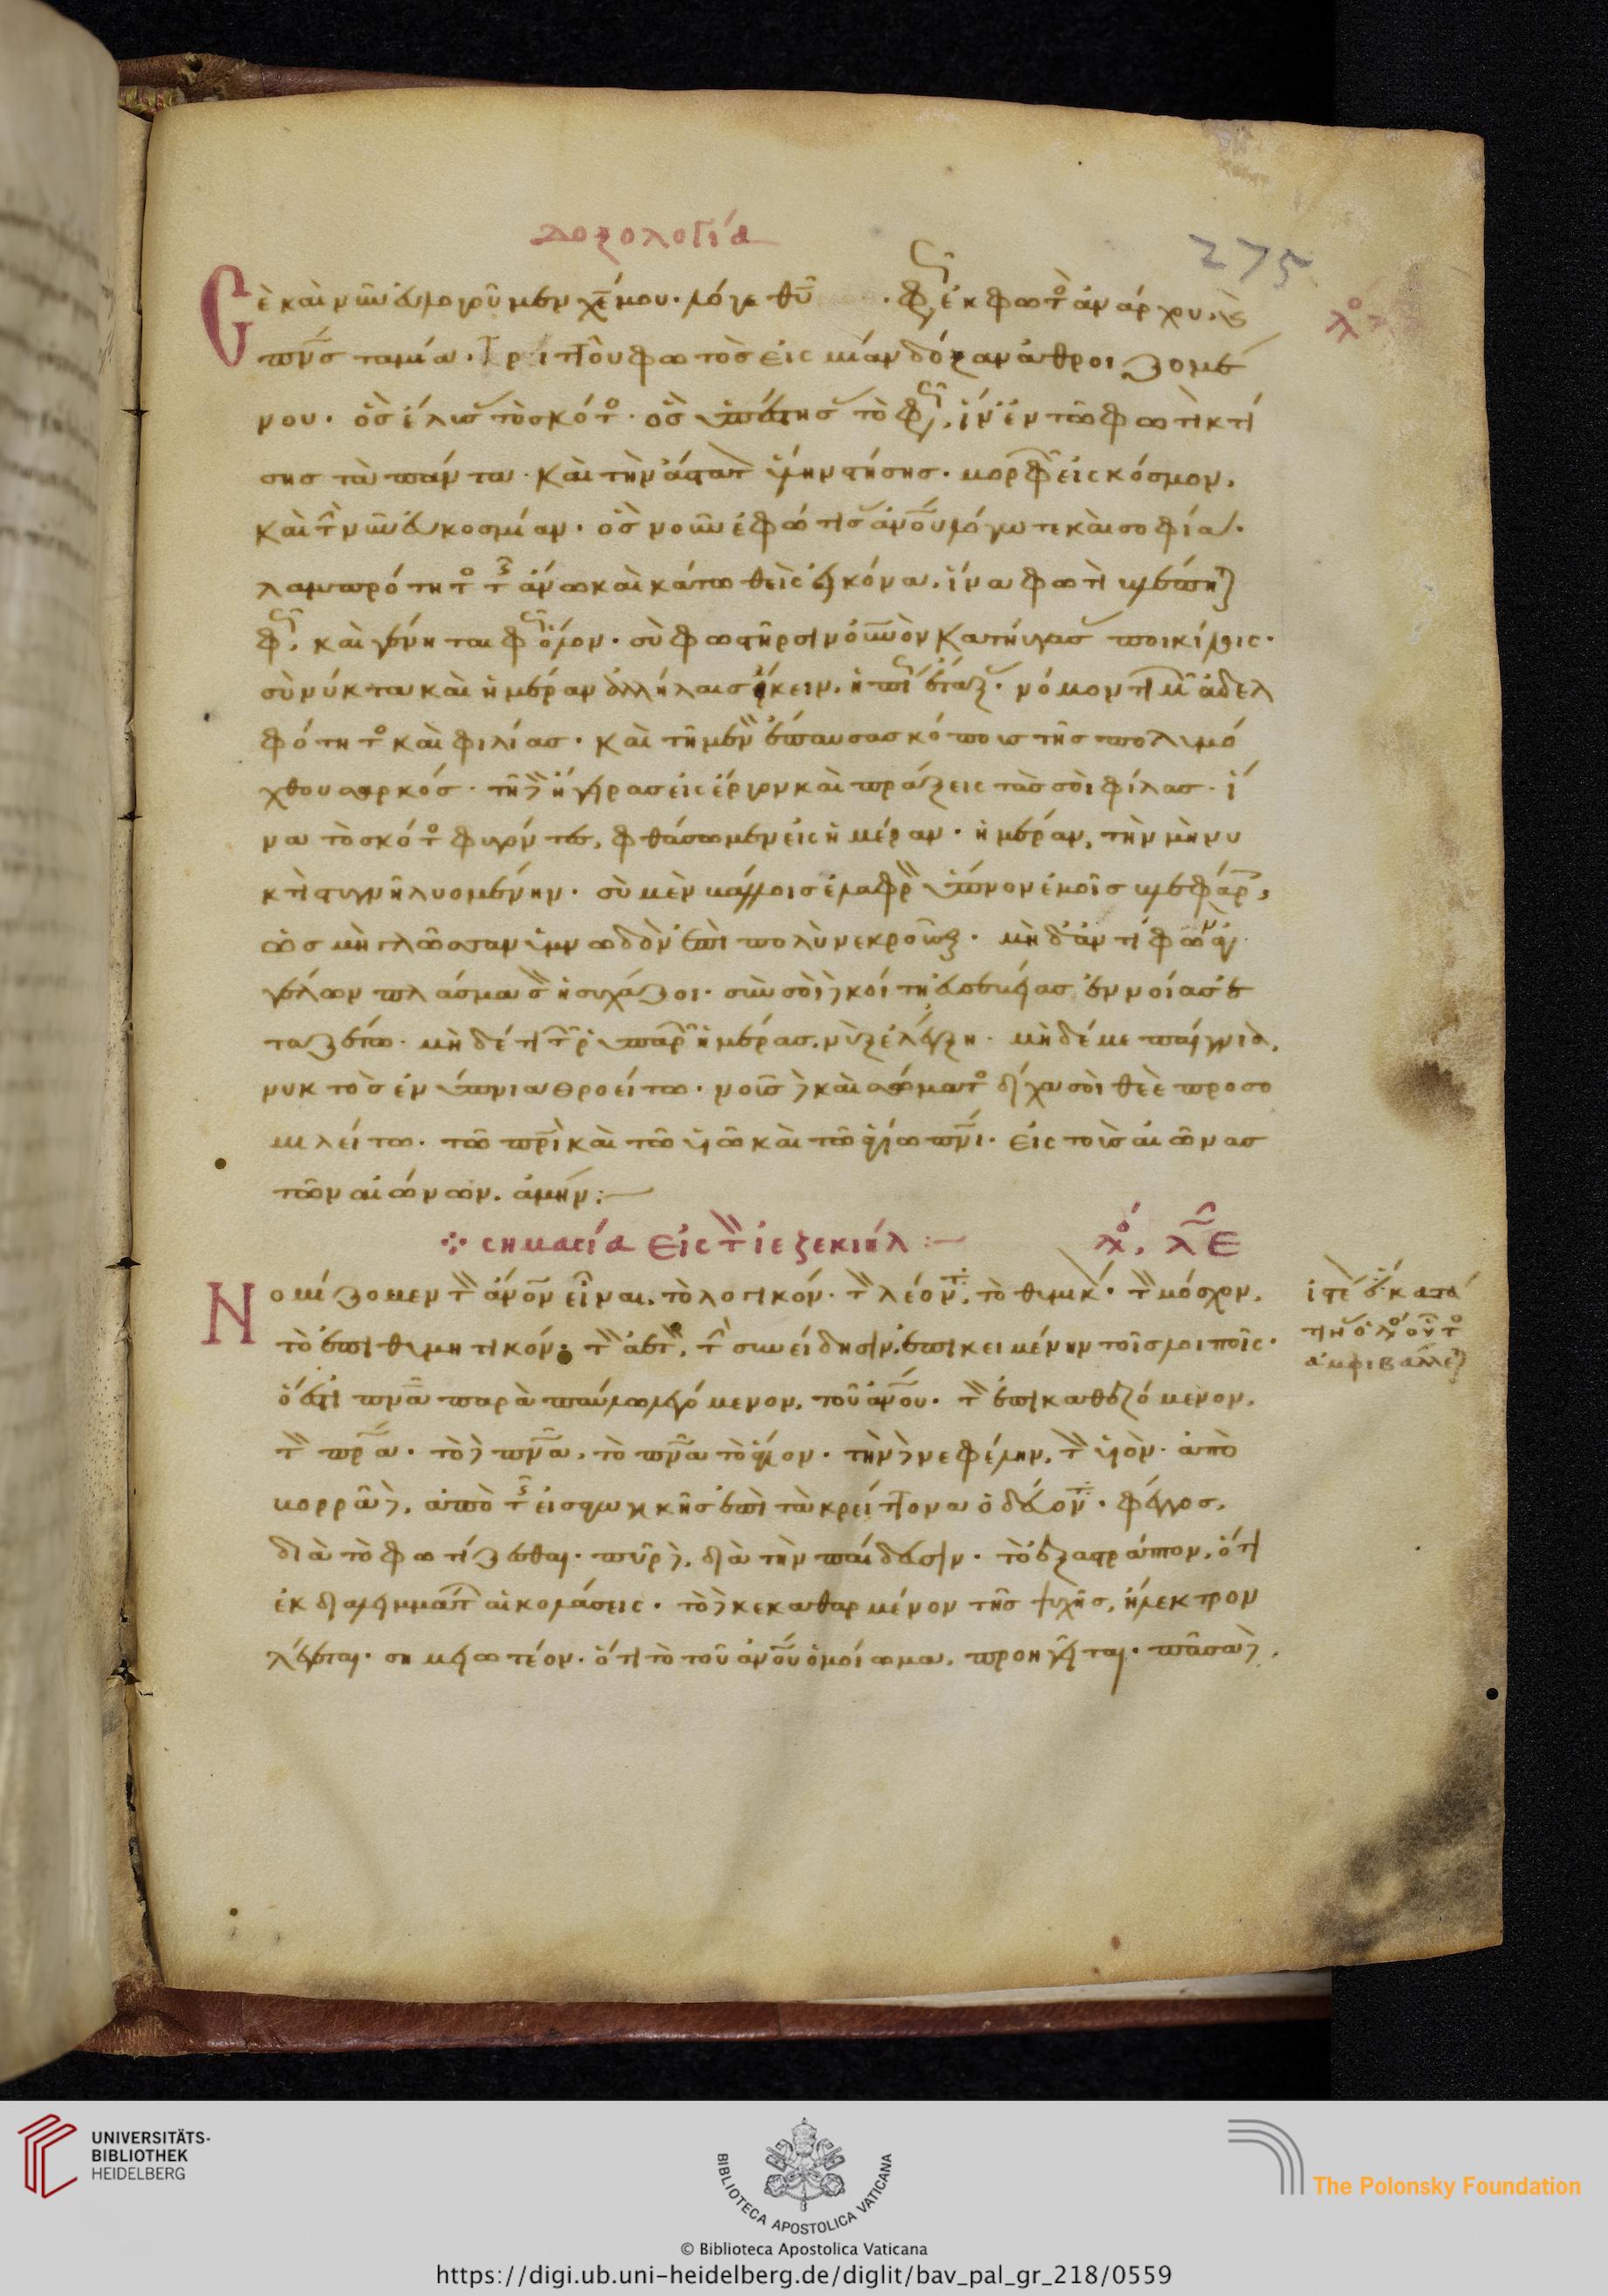 δοξολογία
275
Σὲ καὶ νῦν εὐλογοῦμεν χέ μου· λόγε θυ · φῶς ἐκ φωτὸς ἀνάρχου, καὶ
πνς ταμία. Τριττοῦ φωτὸς εἰς μίαν δόξαν ἀθροιζομέ
νου. ὃς ἔλυσας τὸ σκότος. ὃς ὑπέστησας τὸ φῶς, ἵν' ἐν τῶ φωτὶ κτί
σης τὰ πάντα. καὶ τὴν ἄστατον ὕλην στήσης. μορφῶν εἰς κόσμον,
καὶ τὴν νῦν εὐκοσμίαν. ὃς νοῦν ἐφώτισας ἀνου λόγω τε καὶ σοφία.
λαμπρότητος τῆς ἄνω καὶ κάτω θεὶς εἰκόνα, ἵνα φωτὶ βλέπη
φῶς, καὶ γένηται φῶς ὅλον. σὺ φωστῆρσιν οὐνὸν κατηύγασας ποικίλοις.
σὺ νύκτα καὶ ἡμέραν ἀλλήλαις εἴκειν, ἠπίως ἔταξας. νόμον τιμῶν ἀδελ
φότητος καὶ φιλίας. καὶ τῆ μὲν ἔπαυσας κόπους τῆς πολυμό
χθου σαρκός. τῆ δὲ ἤγειρας εἰς ἔργον καὶ πράξεις τὰς σοὶ φίλας. ἵ
να τὸ σκότος φυγόντες, φθάσωμεν εἰς ἡμέραν. ἡμέραν, τὴν μὴ νυ
κτὶ στυγνῆ λυομένην. σὺ μὲν βάλοις ἐλαφρὸν ὕπνον ἐμοῖς βλεφάροις,
ὡς μὴ γλῶσσαν ὑμνωδὸν ἐπὶ πολὺ νεκροῦσθαι. μὴ δ' ἀντίφωνον
ἀγγέλων πλάσμα σὸν ἡσυχάζοι. σὺν σοὶ δὲ κοίτη εὐσεβεῖς ἐννοίας ἐ
ταζέτω. μὴ δέ τι τῶν ῥυπαρῶν ἡμέρας, νὺξ ἐλέγξη. μὴ δέ με παίγνια,
νυκτὸς ἐνύπνια θροείτω. νοῦς δὲ καὶ σώματος δίχα σοὶ θεὲ προσο
μιλείτω. τῶ πρὶ καὶ τῶ υἱῶ καὶ τῶ ἁγίω πνι. εἰς τοὺς αἰῶνας
τῶν αἰώνων. ἀμήν:
σημασία εἰς τὸν ἰεζεκιήλ: λό. λε
Νομίζομεν τὸν ἄνον εἶναι, τὸ λογικόν. τὸν λέοντα, τὸ θυμικόν. τὸν μόσχον,
τὸ ἐπιθυμητικόν. τὸν ἀετόν, τὴν συνείδησιν ἐπικειμένην τοῖς λοιποῖς.
ὅ ἐστι πνα παρὰ παύλω λεγόμενον, τοῦ ἀνου. τὸν ἐπικαθεζόμενον,
τὸν πρα. τὸ δὲ πνα, τὸ πνα τὸ ἅγιον. τὴν δὲ νεφέλην, τὸν υἱὸν. ἀπὸ
βορρᾶ δὲ, ἀπὸ τῆς εἰσαγωγικῆς ἐπὶ τὰ κρείττονα ὁδεύοντα. φέγγος,
διὰ τὸ φωτίζεσθαι. πῦρ δὲ, διὰ τὴν παίδευσιν. τὸ ἐξαστράπτον, ὅτι
ἐκ διαλειμμάτων αἱ κολάσεις. τὸ δὲ κεκαθαρμένον τῆς ψυχῆς, ἤλεκτρον
λέγεται. σημειωτέον. ὅτι τὸ τοῦ ἀνου ὁμοίωμα, προηγεῖται. πᾶσα δὲ
UNIVERSITÄTS-
BIBLIOTHEK
HEIDELBERG
BIBLIOTECA APOSTOLICA VATICANA
The Polonsky Foundation
© Biblioteca Apostolica Vaticana
https://digi.ub.uni-heidelberg.de/diglit/bav_pal_gr_218/0559